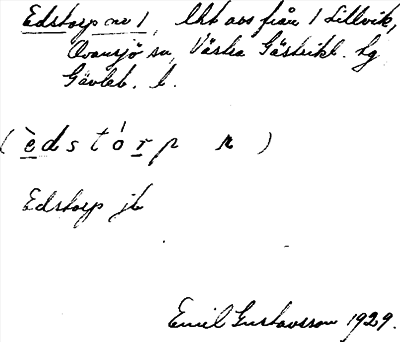 Edstorp nr 1, lht avs från 1 Lillvik,
Ovansjö sn, Västra Gästrikl. tg
Gävleb. l.
(èdstórp n)
Edstorp jb
Emil Gustavsson 1929.